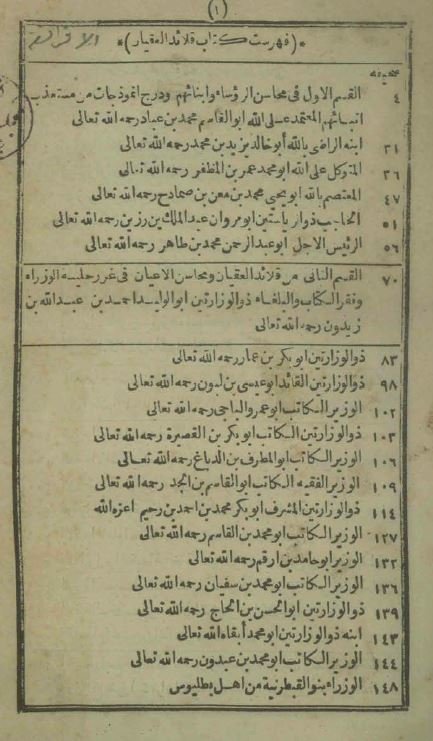 (١)
*(فهرست كتاب قلائد العقيان)*
صحيفه
٤ القسم الاول فى محاسن الرؤساء وابنائهم ودرج انموذجات من مستعذب
انبائهم المعتمد على الله ابو القاسم محمد بن عباد رحمه الله تعالى
٣١ ابنه الراضى بالله أبو خالد يزيد بن محمد رحمه الله تعالى
٣٦ المتوكل على الله ابو محمد عمر بن المظفر رحمه الله تعالى
٤٧ المعتصم بالله ابو يحيى محمد بن معن بن صمادح رحمه الله تعالى
٥١ الحاجب ذو الرياستين ابو مروان عبد الملك بن رزين رحمه الله تعالى
٥٦ الرئيس الاجل ابو عبد الرحمن محمد بن طاهر رحمه الله تعالى
٧٠ القسم الثانى من قلائد العقيان ومحاسن الاعيان فى غرر حلية الوزراء
وفقر الكتاب والبلغاء ذو الوزارتين ابو الوليد احمد بن عبد الله بن
زيدون رحمه الله تعالى
٨٣ ذو الوزارتين ابو بكر بن عمار رحمه الله تعالى
٩٨ ذو الوزارتين القائد ابو عيسى بن لبون رحمه الله تعالى
١٠٢ الوزير الكاتب ابو عمرو الباجى رحمه الله تعالى
١٠٣ ذو الوزارتين الكاتب ابو بكر بن القصيرة رحمه الله تعالى
١٠٦ الوزير الكاتب ابو المطرف بن الدباغ رحمه الله تعالى
١٠٩ الوزير الفقيه الكاتب ابو القاسم بن الجد رحمه الله تعالى
١١٤ ذو الوزارتين المشرف ابو بكر محمد بن احمد بن رحيم اعزه الله
١٢٧ الوزير الكاتب ابو محمد بن القاسم رحمه الله تعالى
١٣٢ الوزير ابو عامد بن ارقم رحمه الله تعالى
١٣٦ الوزير الكاتب ابو محمد بن سفيان رحمه الله تعالى
١٣٩ ذو الوزارتين ابو الحسن بن الحاج رحمه الله تعالى
١٤٣ ابنه ذو الوزارتين ابو محمد أبقاه الله تعالى
١٤٤ الوزير الكاتب ابو محمد بن عبدون رحمه الله تعالى
١٤٨ الوزراء بنو القبطرنية من اهل بطليوس